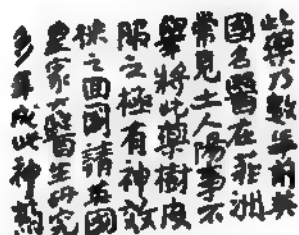 此藥乃數年前英
國名醫在非洲
常見土人陽事不
舉將此藥樹皮
服之極有神效
之回國請英國
皇家大醫生研究
多年成此神